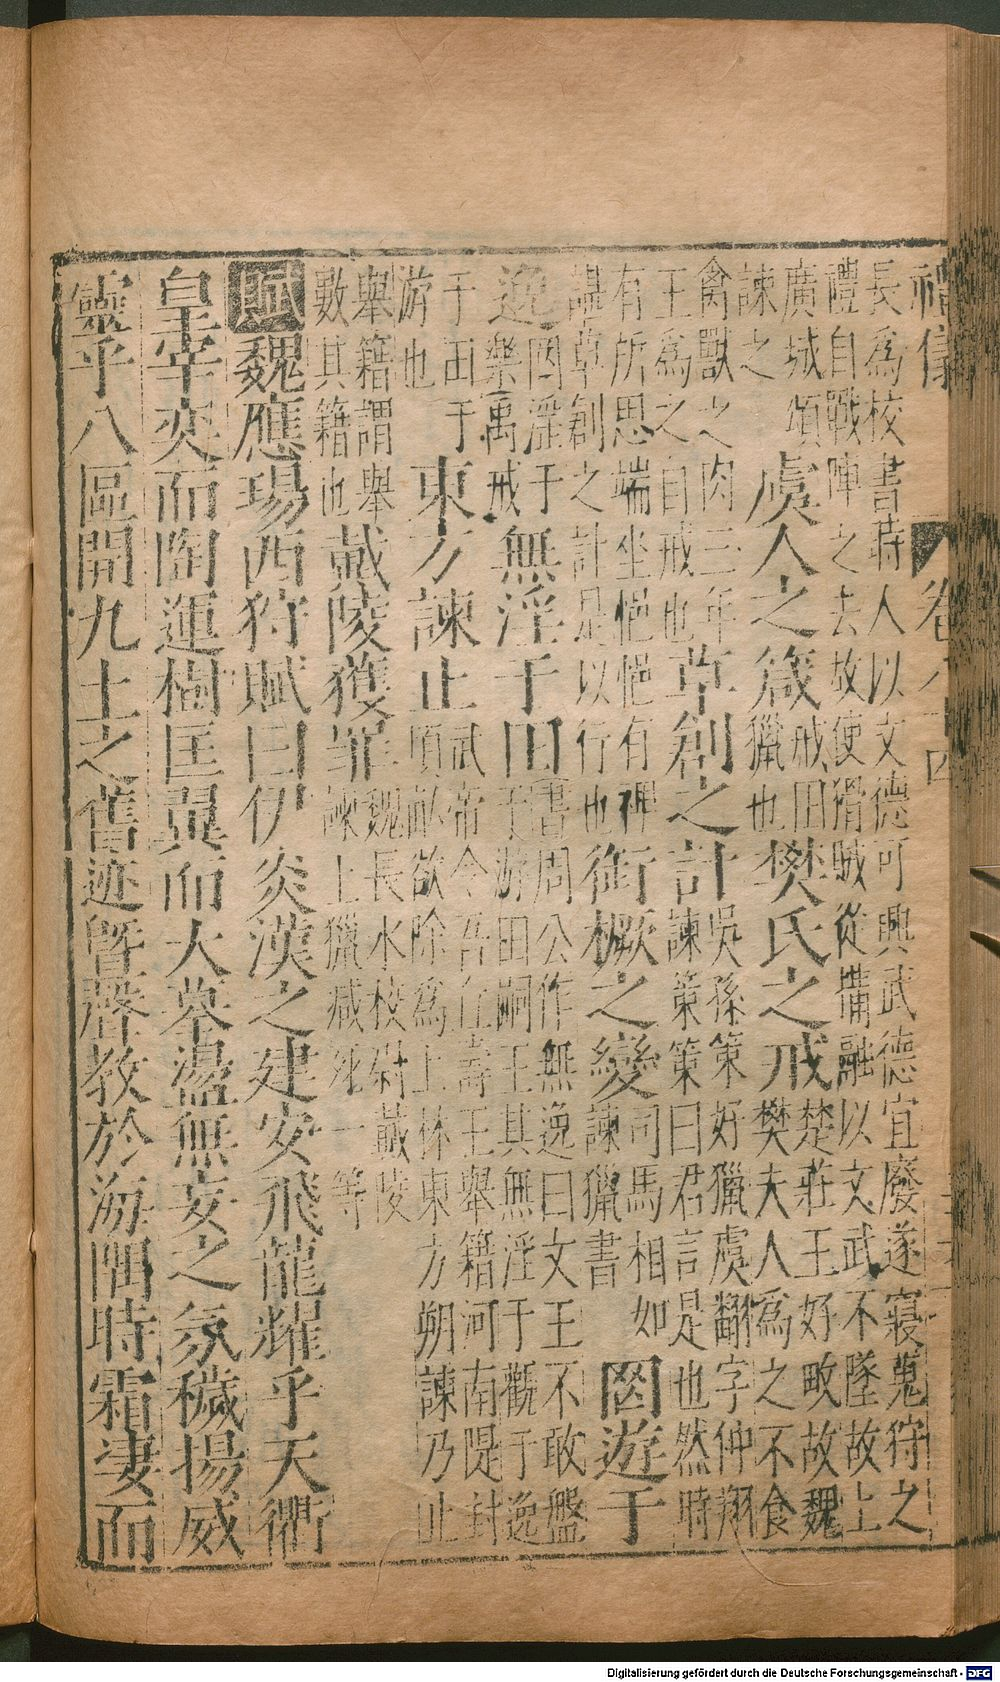 長為校書時人以文德可興武德宜廢遂寢蒐狩之
禮自戰陣之去故使猾賊從備融以文武不墜故上
廣城頌
諫之
虞人之箴
戒田
獵也
樊氏之戒
楚莊王好畋故魏
樊夫人為之不食
禽獸之肉三年
王為之自戒也
草創之計
吳孫策好獵虞翻字仲翔
諫策策曰君言是也然時
有所思端坐悒悒有裨
諶草創之計是以行也
銜橛之變
司馬相如
諫獵書
罔遊于
逸罔淫于
樂禹戒
無淫于田
書周公作無逸曰文王不敢盤
于游田嗣王其無淫于觀于逸
于田于
游也
東方諫止
武帝令吾丘壽王舉籍河南隄封
頃畝欲除為上林東方朔諫乃止
舉籍謂舉
數其籍也
戴陵獲罪
魏長水校尉戴陵
諫上獵減死一等
賦魏應瑒西狩賦曰伊炎漢之建安飛龍耀乎天衢
皇宰奕而陶運樹匡翼而大摹盪無妄之氛穢揚威
靈乎八區開九土之舊迹暨聲教於海隅時霜淒而
卷八十四